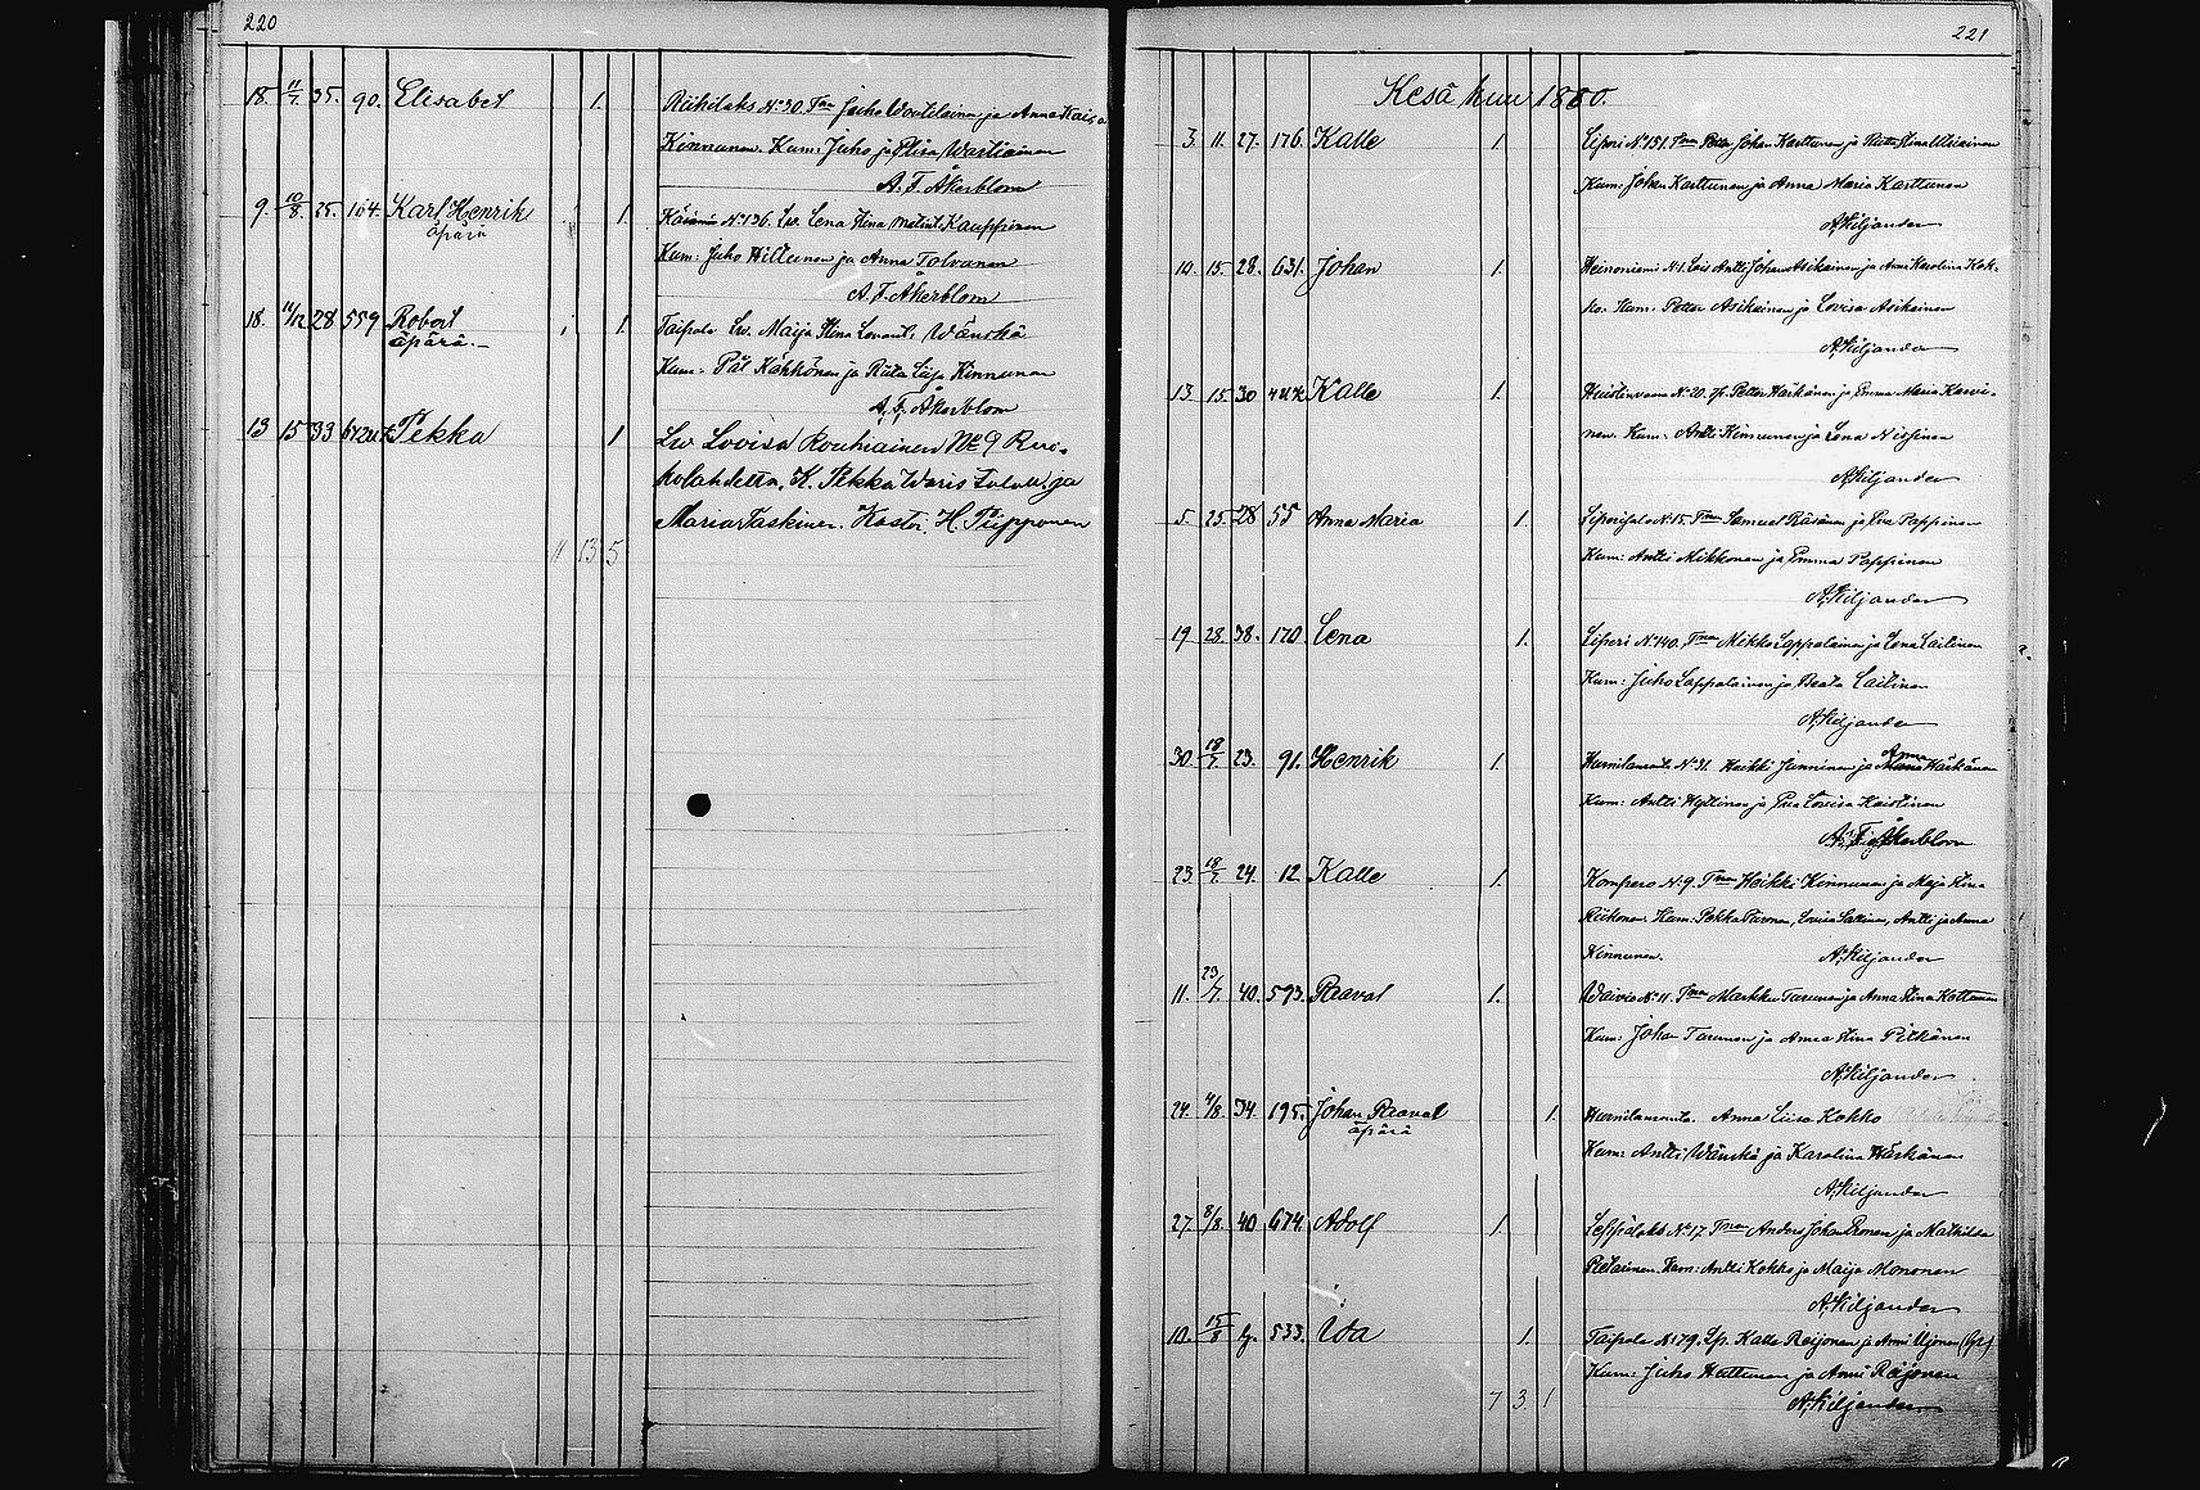 220
18. 11/7. 35. 90. Elisabet 1. Riihilaks No 30. Tm Juho Woutilainen ja Anna Kaisa
Kinnunen. Kum: Juho ja Elisa Wartiainen
A. F. Åkerblom
9. 10/8. 25. 104. Karl Henrik 1. No 136. Lw. Lena Stina Kauppinen
äpärä
Kum: Juho Hiltunen ja Anna Tolvanen
A. F. Åkerblom
18. 11/12 28 559 Robert 1. Taipale Lw. Maija Stina Wänskä
äpärä.-
Kum: Pål Kähkönen ja Riita Liisa Kinnunen
A. F. Åkerblom
13 15 33 Pekka 1 Lw Lovisa Rouhiainen No 9 Ruo-
kolahdelta. K. Pekka Waris ja
Maria Taskinen. Kastoi H. Piipponen
11 13 5
221
Kesä kuu 1880.
3. 11. 27. 176. Kalle 1. Liperi No 151. Tm Johan Karttunen ja Stina
Kum: Johan Karttunen ja Anna Maria Karttunen
A. Kiljander
10. 15. 28. 631. Johan 1. Heinoniemi No 1. Antti Johan Asikainen ja Anna Karolina Kok-
ko. Kum: Petter Asikainen ja Lovisa Asikainen
A. Kiljander
13. 15. 30 Kalle 1. No 20. Petter Härkönen ja Emma Maria Karvi-
nen. Kum: Antti Kinnunen ja Lena Nissinen
A. Kiljander
5. 25. 28 55 Anna Maria 1. Liperisalo No 15. Tm Samuel Räsänen ja Eva Pappinen
Kum: Antti Mikkonen ja Emma Pappinen
A. Kiljander
19 28. 38. 170. Lena 1. Liperi No 140. Tm Mikko Lappalainen ja Lena Laitinen
Kum: Juho Lappalainen ja Beata Laitinen
A. Kiljander
Anna
30. 18/7. 23. 91. Henrik 1. No 31. Heikki Janninen ja Härkönen
Kum: Antti Hyttinen ja Eva Lovisa Kaistinen
A. F. Åkerblom
23 18/7. 24. 12 Kalle 1. Kompero No 9. Tm Heikki Kinnunen ja Maja Stina
Riikonen. Kum: Pekka Piironen, Lovisa, Antti ja Anna
Kinnunen. A. Kiljander
11. 23/7. 40. 593. Paaval 1. Waivio No 11. Tm Markku Tarunen ja Anna Stina Kottonen
Kum: Johan Tarunen ja Anna Stina Pitkänen
A. Kiljander
24. 4/8. 34. 195. Johan Paaval 1. Anna Liisa Kokko
äpärä
Kum: Antti Wänskä ja Karolina Härkönen
A. Kiljander
27. 8/8. 40 674. Adolf 1. Leppälaks No 17. Tm Anders Johan Ikonen ja Mathilda
Pietarinen. Kum: Antti Kokko ja Maija Mononen
A. Kiljander
10. 15/8 533. Ida 1. Taipale No 79. Lp. Kalle Reijonen ja Anni
Kum: Juho Hattunen ja Anni Reijonen
7 3. 1 A. Kiljander